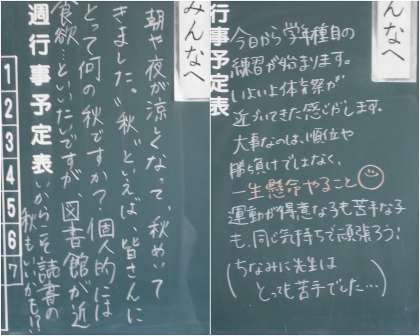 みんなへ
週行事予定表
1
2
3
4
5
6
7
朝や夜が涼しくなって、秋めいて
きました。"秋"といえば、皆さんに
とって何の秋ですか？個人的には
食欲…といいたいですが、図書館が近
いからこそ読書の
秋もいいかも!!
んなへ
行事予定表
今日から学年種目の
練習が始まります。
いよいよ体育祭が
近づいてきた感じがします。
大事なのは、順位や
勝ち負けではなく、
一生懸命やること
運動が得意な子も苦手な子
も、同じ気持ちで頑張ろう！
(ちなみに先生は
とっても苦手でした…)